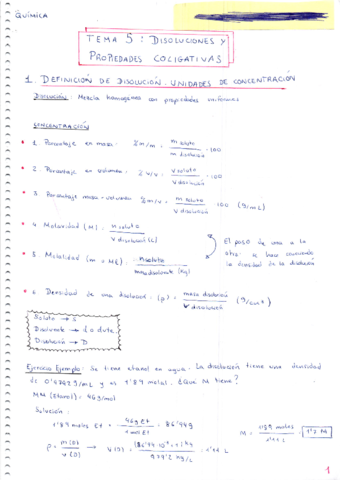 QUÍMICA
TEMA 5: DISOLUCIONES Y
PROPIEDADES COLIGATIVAS
1. DEFINICIÓN DE DISOLUCIÓN. UNIDADES DE CONCENTRACIÓN
DISOLUCIÓN: Mezcla homogénea con propiedades uniformes
CONCENTRACIÓN
* 1. Porcentaje en masa: % m/m = m soluto / m disolución · 100
* 2. Porcentaje en volumen: % v/v = V soluto / V disolución · 100
* 3. Porcentaje masa-volumen: % m/v = m soluto / V disolución · 100 (g/mL)
* 4. Molaridad (M) = n soluto / V disolución (L)
El paso de una a la
otra se hace
la densidad de la disolución
* 5. Molalidad (m = = n soluto / m disolvente (Kg)
* 6. Densidad de una disolución: (ρ) = masa disolución / V disolución (g/cm³)
Soluto → S
Disolvente →
Disolución → D
Ejercicio Ejemplo: Se tiene etanol en agua. La disolución tiene una densidad
de g/mL y es 1'89 molal. ¿Qué M tiene?
MM (Etanol) = 46 g/mol
Solución:
1'89 moles Et · 46g Et / 1 mol Et = 86'94 g
M = 1'89 moles
ρ = m (D) / V (D) → V (D) =
1